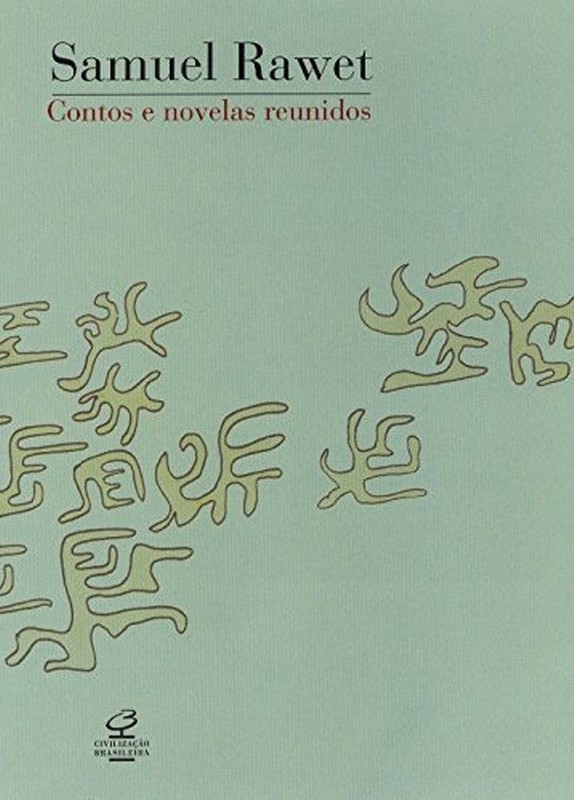 Samuel Rawet
Contos e novelas reunidos
CIVILIZAÇÃO
BRASILEIRA